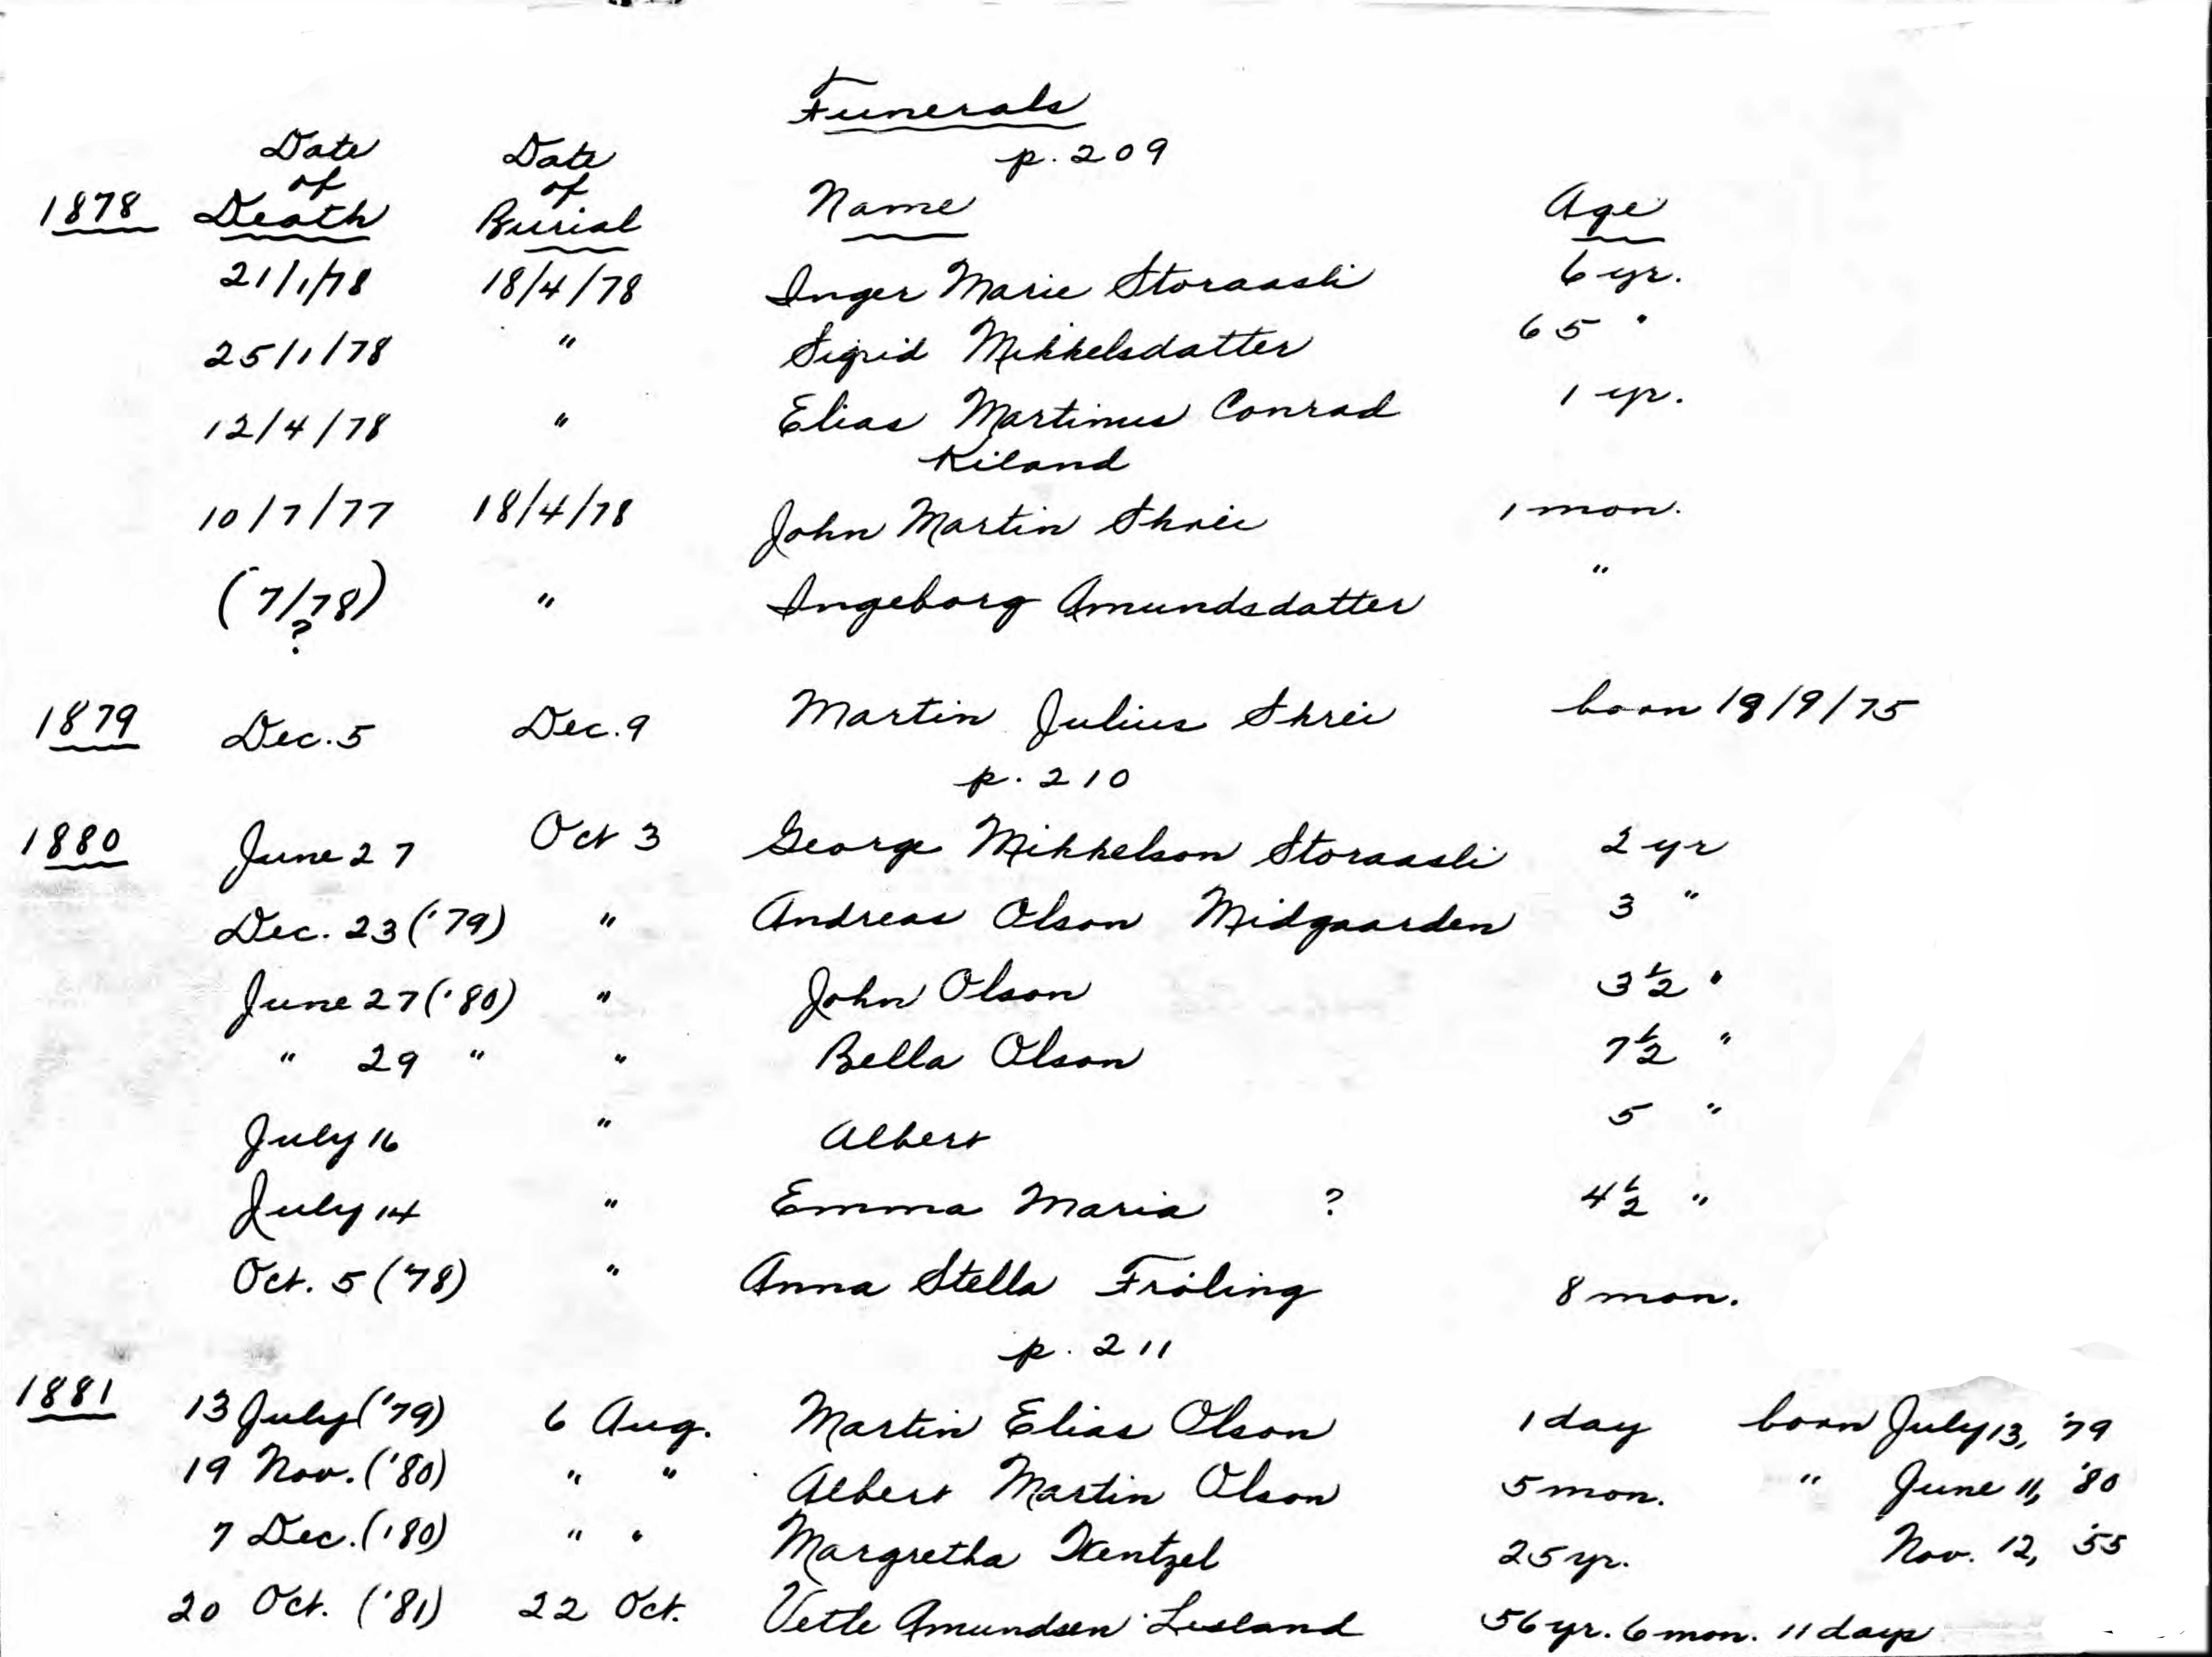 Funerals
p. 209
1878 Date of Death Date of Burial Name Age
21/1/78 18/4/78 Inger Marie Storaasli 6 yr.
25/1/78 " Sigrid Mikkelsdatter 65 "
12/4/78 " Elias Martinus Conrad 1 yr.
Kiland
10/7/77 18/4/78 John Martin Skrei 1 mon.
(7/78) " Ingeborg Amundsdatter "
?
1879 Dec. 5 Dec. 9 Martin Julius Skrei born 18/9/75
p. 210
1880 June 27 Oct 3 George Mikkelson Storaasli 2 yr
Dec. 23 ('79) " Andreas Olson Midgaarden 3 "
June 27 ('80) " John Olson 3½ "
" 29 " " Bella Olson 7½ "
July 16 " Albert 5 "
July 14 " Emma Maria ? 4½ "
Oct. 5 ('78) " Anna Stella Fröling 8 mon.
p. 211
1881 13 July ('79) 6 Aug. Martin Elias Olson 1 day born July 13, '79
19 Nov. ('80) " " Albert Martin Olson 5 mon. " June 11, '80
7 Dec. ('80) " " Margretha 25 yr. Nov. 12, '55
20 Oct. ('81) 22 Oct. Vetle Amundsen Lisland 56 yr. 6 mon. 11 days